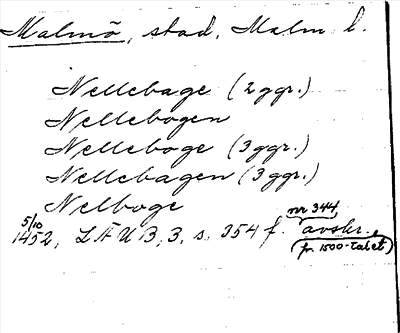 Malmö, stad, Malm. l.
Nellebage (2 ggr.)
Nellebogen
Nelleboge (3 ggr.)
Nellebagen (3 ggr.)
Nelboge
5/10 1452, LÄUB, 3, s. 354 f. nr 344, avskr.
(fr. 1500-talet)